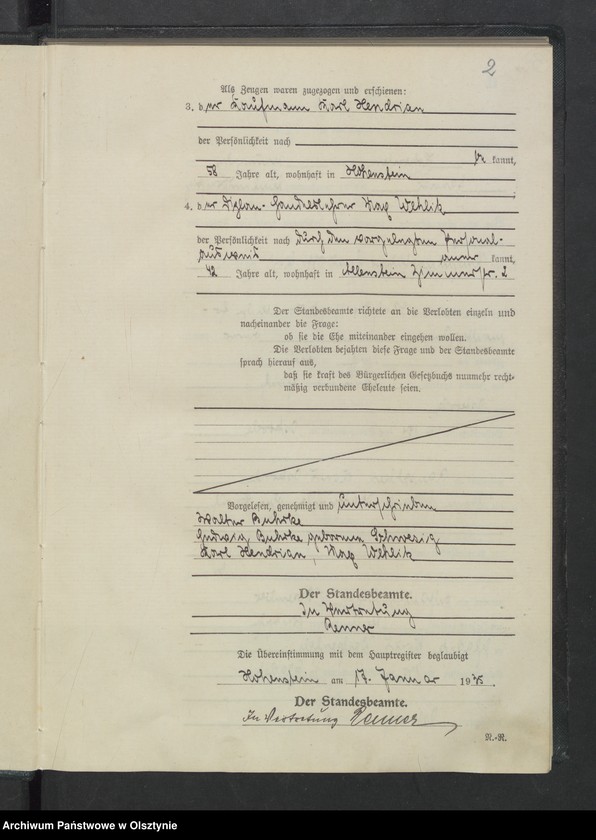 2
Als Zeugen waren zugezogen und erschienen:
3. der Kaufmann Karl Hendrian
der Persönlichkeit nach
be kannt,
58 Jahre alt, wohnhaft in Hohenstein
4. der Diplom-Handelslehrer Wehlik
der Persönlichkeit nach durch den vorgelegten Personal-
ausweis aner kannt,
42 Jahre alt, wohnhaft in Allenstein 2
Der Standesbeamte richtete an die Verlobten einzeln und
nacheinander die Frage:
ob sie die Ehe miteinander eingehen wollen.
Die Verlobten bejahten diese Frage und der Standesbeamte
sprach hierauf aus,
daß sie kraft des Bürgerlichen Gesetzbuchs nunmehr recht-
mäßig verbundene Eheleute seien.
Vorgelesen, genehmigt und unterschrieben
Walter Buhrke
Hedwig Buhrke geborene
Karl Hendrian, Wehlik
Der Standesbeamte.
In Vertretung
Renner
Die Übereinstimmung mit dem Hauptregister beglaubigt
Hohenstein am 17. Januar 19
Der Standesbeamte.
In Vertretung Renner
R.-R.
Archiwum Państwowe w Olsztynie